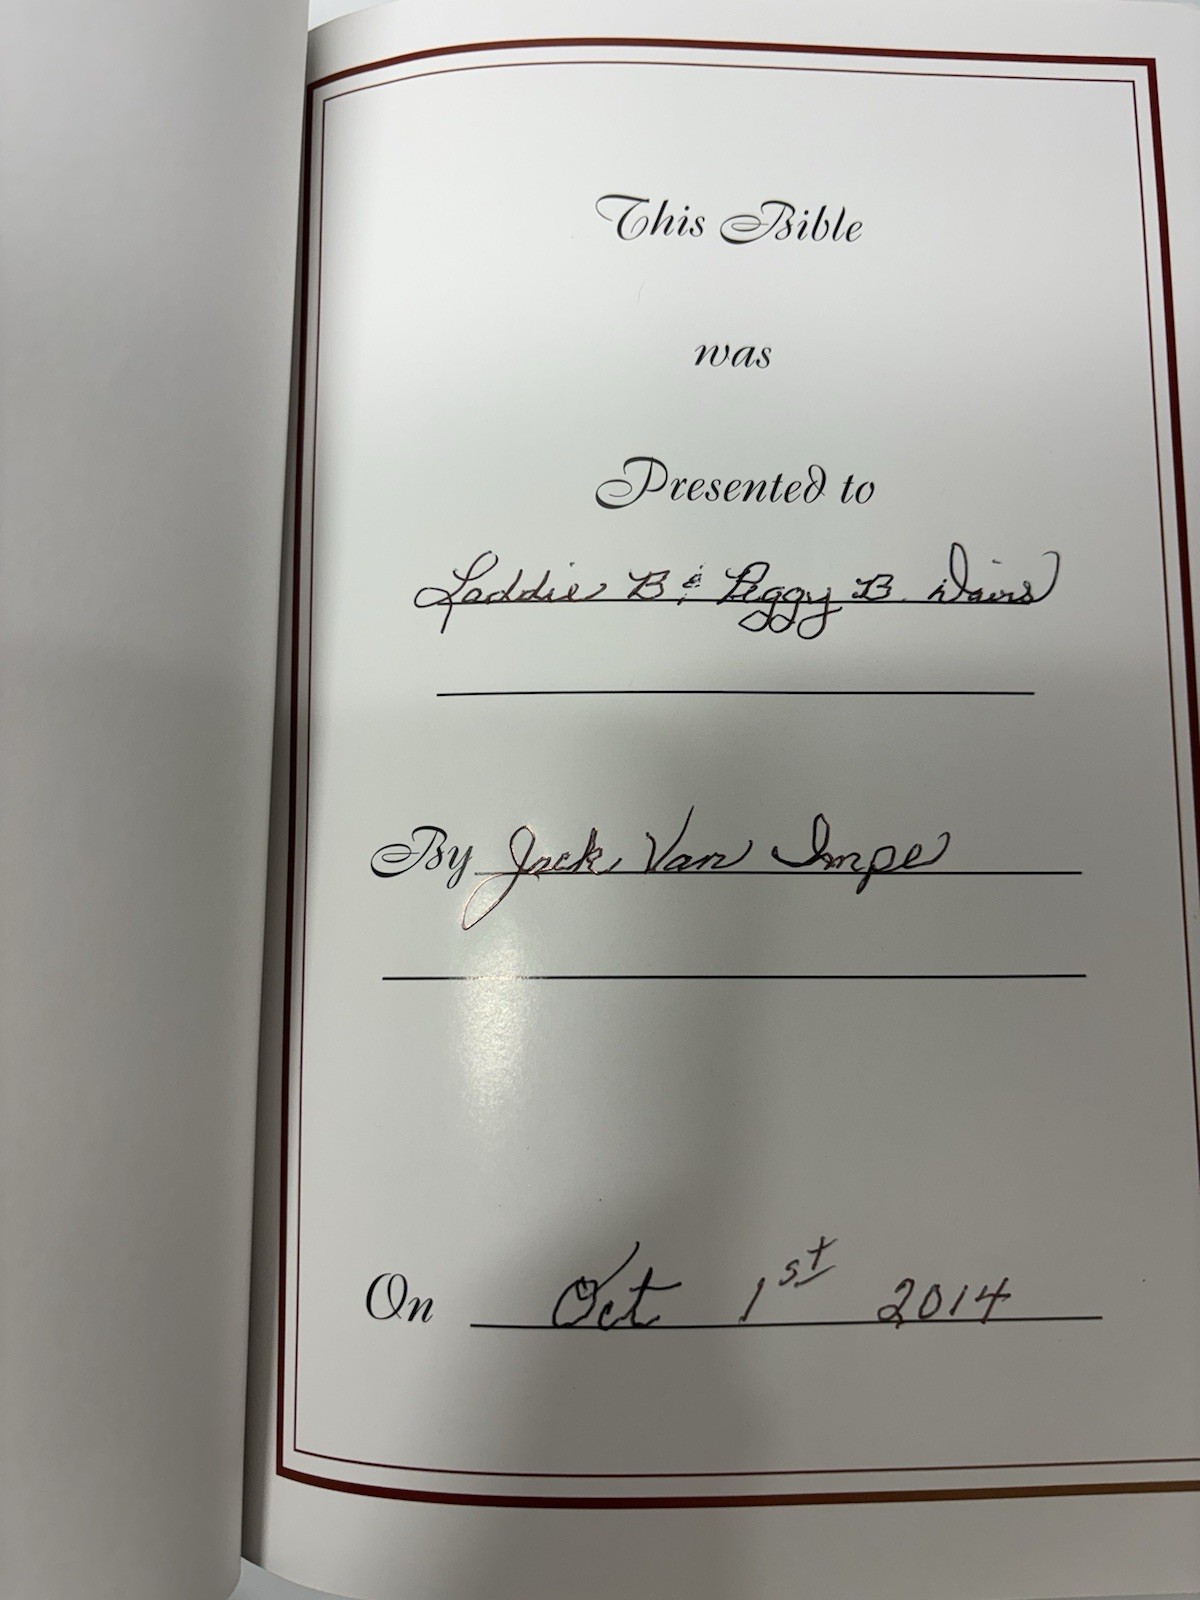 This Bible
was
Presented to
Laddie B & Peggy B. Davis
By Jack Van Impe
On Oct 1st 2014